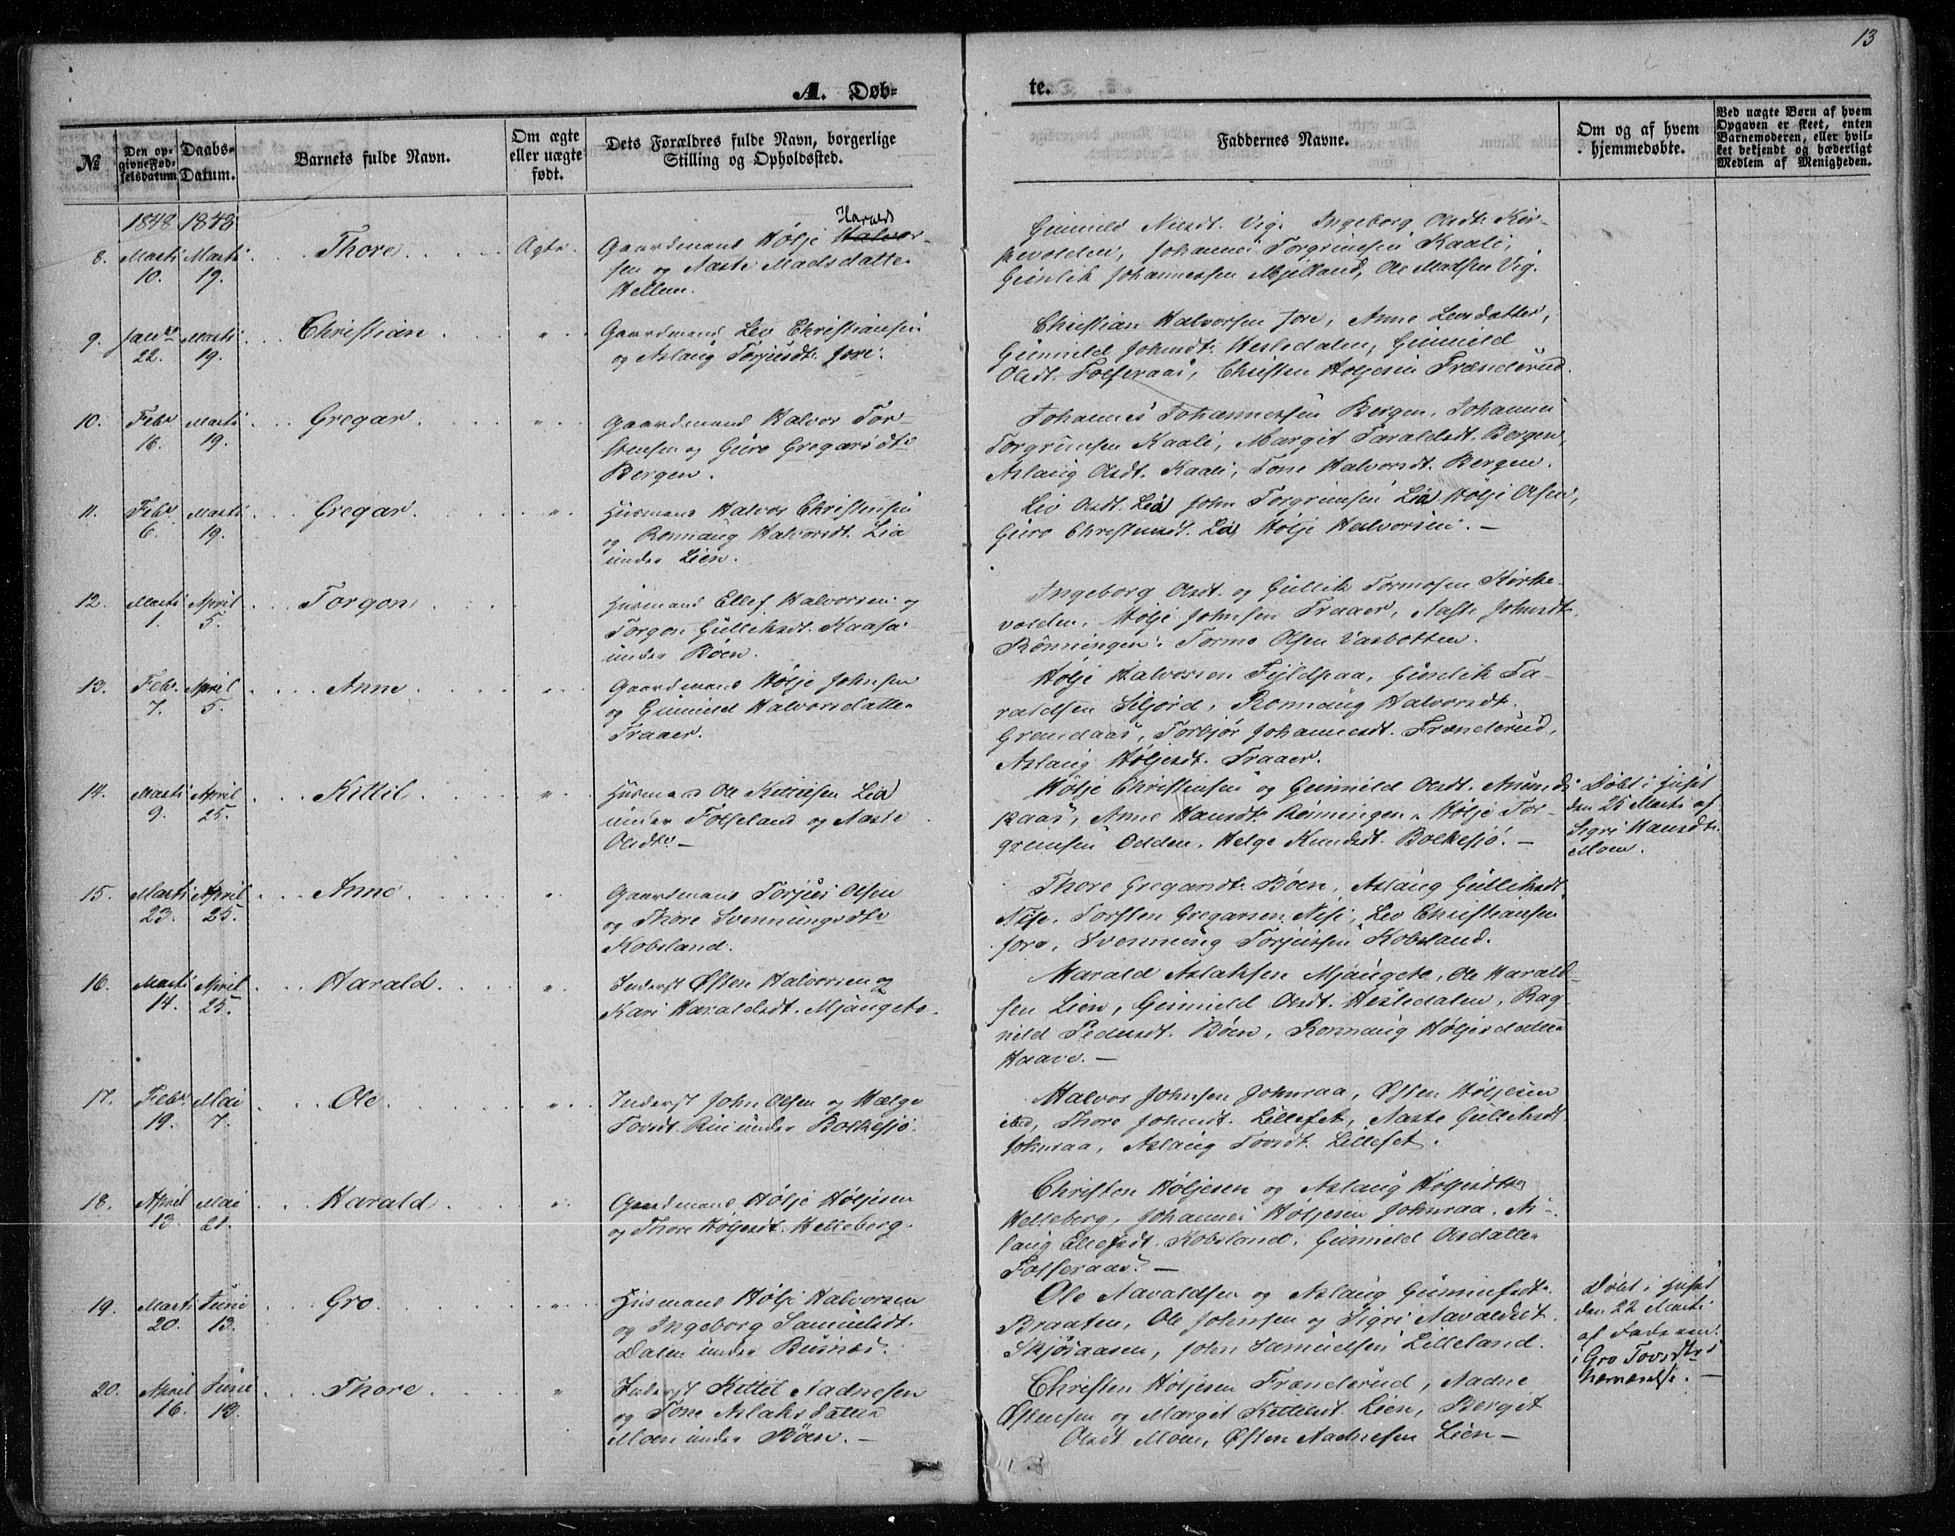 13
A. Døb-
te.
№
Den op-
givne Fød-
selsdatum
Daabs-
Datum.
Barnets fulde Navn.
Om ægte
eller uægte
født.
Dets Forældres fulde Navn, borgerlige
Stilling og Opholdssted.
Faddernes Navne.
Om og af hvem
hjemmedøbte.
Ved uægte Børn af hvem
Opgaven er skeet, enten
Barnemoderen, eller hvil-
ket bekjendt og hæderligt
Medlem af Menigheden.
1848 1848
8. Marti 10. Marti 19. Thore Ægte
Gaardmand Hølje Halvor- Harald
sen og Aaste Madsdatter
Hellem.
Gunild Nilsdt. Vig. Ingeborg Olsdt. Kir-
kevolden, Johannes Torgrimsen Kaali,
Gunlik Johannessen Mjelland, Ole Madsen Vig.
9. Januar 22. Marti 19. Christian "
Gaardmand Lev Christiansen
og Aslaug Torjusdt. Jore.
Christian Halvorsen Jore, Anne Levsdatter,
Gunnild Johnsdt. Hesledalen, Gunnild
Olsdt. Folseraas, Christen Høljesen Frænderud.
10. Febr 16. Marti 19. Gregar "
Gaardmand Halvor Tor-
stensen og Guro Gregarsdtr
Bergen.
Johannes Johannessen Bergen, Johannes
Torgrimsen Kaali, Margit Taraldsdt. Bergen,
Aslaug Olsdt. Kaali, Tone Halvorsdt. Bergen.
11. Febr. 6. Marti 19. Gregar "
Husmand Halvor Christensen
og Ronnaug Halvorsdt. Lia
under Lien.
Liv Olsdt. Lia John Torgrimsen Lia Hølje Olsen,
Guro Christensdt. Lia Hølje Halvorsen. —
12. Marti 1 April 5. Torgon
Husmand Ellef Halvorsen og
Torgon Gulleksdt. Kaasa
under Bøen.
Ingeborg Olsdt. og Gullik Tormosen Kirke-
volden, Hølje Johnsen Traaer, Aaste Johnsdt.
Rønningen. Tormo Olsen Vasbotten.
13. Febr. 7. April 5. Anne "
Gaardmand Hølje Johnsen
og Gunnild Halvorsdatter
Traaer.
Hølje Halvorsen Fjeldpaa, Gunlik Ta-
raldsen Siljord, Ronnaug Halvorsdt.
Grendaas, Torbjør Johannesdt. Frænderud,
Aslaug Høljesdt. Traaer.
14. Marti 9. April 25. Kittil "
Husmand Ole Kittilsen Lia
under Folseland og Aaste
Olsdtr —
Hølje Christensen og Gunnild Olsdt.
kaas, Anne Hansdt. Rønningen, Hølje Tor-
grimsen Odden, Helge Knudsdt. Bolkesjø. —
Døbt i Huset
den 25 Marti af
Sigri Hansdtr.
Moen.
15. Marti 23. April 25. Anne "
Gaardmand Torjus Olsen
og Thore Svenningsdtr
Kobsland.
Thore Gregarsdt. Bøen, Aslaug Gulleksdt
Nise, Torsten Gregarsen Nisi, Lev Christiansen
Jore, Svenning Torjussen Kobsland.
16. Marti 14. April 25. Harald "
Inderst Østen Halvorsen og
Kari Haraldsdt. Mjaugeto.
Harald Aslaksen Mjaugeto, Ole Harald-
sen Lien, Gunnild Olsdt. Hesledalen, Rag-
nild Pedersdt. Bøen, Ronnaug Høljesdatter
Haave. —
17. Febr. 19. Mai 7. Ole "
Inderst John Olsen og Hælge
Tovsdt. under Bolkesjø.
Halvor Johnsen Johnsaa, Østen Høljesen
ibid, Thore Johnsdt. Lilleset, Aaste Gulleksdt
Johnsaa, Aslaug Tovsdt. Lilleset.
18. April 13. Mai 21. Harald "
Gaardmand Hølje Høljesen
og Thore Høljesdt. Helleberg.
Christen Høljesen og Aslaug Høljesdtr
Helleberg, Johannes Høljesen Johnsaa, As-
laug Ellefsdt. Kobsland, Gunnild Olsdatter
Folseraas. —
19. Marti 20. Junie 13. Gro "
Husmand Hølje Halvorsen
og Ingeborg Samuelsdt.
Dalen under Busnæs.
Ole Aavaldsen og Aslaug Gunnufsdt.
Braaten, Ole Johnsen og Sigri Aavaldsdt.
Skjøsaasen, John Samuelsen Lilleland.
Døbt i Huset
den 22 Marti
af Faderen
i Gro Tovsdtrs
Nærværelse. —
20. April 16. Junie 13. Thore "
Inderst Kittil Aadnesen
og Tone Aslaksdatter
Moen under Bøen. —
Christen Høljesen Frænderud, Aadne
Østensen og Margit Kittilsdt. Lien, Bergit
Olsdt. Moen, Østen Aadnesen Lien —